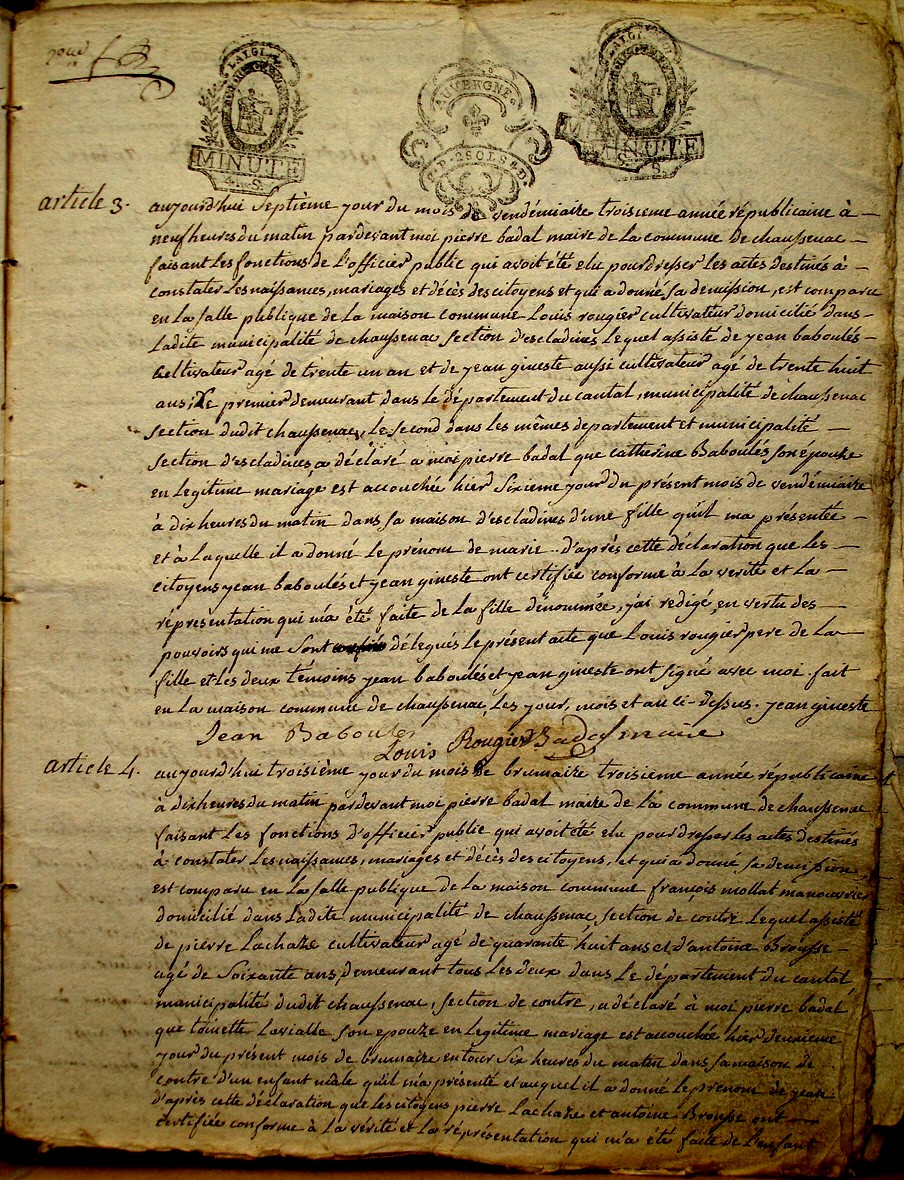 LA LOI
MINUTE
4. S.
AUVERGNE
P.P. 2 SOLS 8 D.
LA LOI
MINUTE
S.
article 3.
aujourd'hui Septième jour du mois de vendémiaire troisieme année républicaine à
neuf heures du matin pardevant moi pierre badal maire de la commune de chaussenac
faisant les fonctions de l'officier public qui avoit été elu pour dresser les actes destinés à
constater les naissances, mariages et décès des citoyens et qui a donné sa demission, est comparu
en la salle publique de la maison commune Louis rougier cultivateur domicilié dans
ladite municipalité de chaussenac section d'escladines lequel assisté de jean baboulés
cultivateur agé de trente un an et de jean gineste aussi cultivateur agé de trente huit
ans, le premier demeurant dans le département du cantal, municipalité de chaussenac
section dudit chaussenac, le second dans les mêmes departement et municipalité
section d'escladines a déclaré a moi pierre badal que catherine Baboulés son épouse
en legitime mariage est accouchée hier Sixieme jour du présent mois de vendémiaire
à dix heures du matin dans sa maison d'escladines d'une fille qu'il ma présentée
et à laquelle il a donné le prénom de marie .. d'après cette déclaration que les
citoyens jean baboulés et jean gineste ont certifiée conforme à la verité et la
répresentation qui m'a été faite de la fille dénommée, j'ai redigé, en vertu des
pouvoirs qui me sont délégués le présent acte que Louis rougier pere de la
fille et les deux témoins jean baboulés et jean gineste ont signé avec moi. fait
en la maison commune de chaussenac, les jour, mois et an ci-dessus. jean gineste
Jean Baboules
Louis Rougier Badal maire
article 4.
aujourd'hui troisième jour du mois de brumaire troisieme année républicaine
à dix heures du matin pardevant moi pierre badal maire de la commune de chaussenac
faisant les fonctions d'officier public qui avoit été elu pour dresser les actes destinés
à constater les naissances, mariages et décès des citoyens, et qui a donné sa demission,
est comparu en la salle publique de la maison commune françois mollat manouvrier
domicilié dans ladite municipalité de chaussenac, section de contre lequel assisté
de pierre Lachaze cultivateur agé de quarante huit ans et d'antoine Brousse
agé de Soixante ans, demeurant tous les deux dans le département du cantal
municipalité dudit chaussenac, section de contre, a déclaré à moi pierre badal
que toinette Lavialle son epouze en legitime mariage est accouchée hier deuxieme
jour du présent mois de brumaire entour six heures du matin dans sa maison de
contre d'un enfant mâle qu'il m'a présenté et auquel il a donné le prenom de jean
d'après cette déclaration que les citoyens pierre Lachaze et antoine Brousse ont
certifiée conforme à la vérité et la répresentation qui m'a été faite de l'enfant